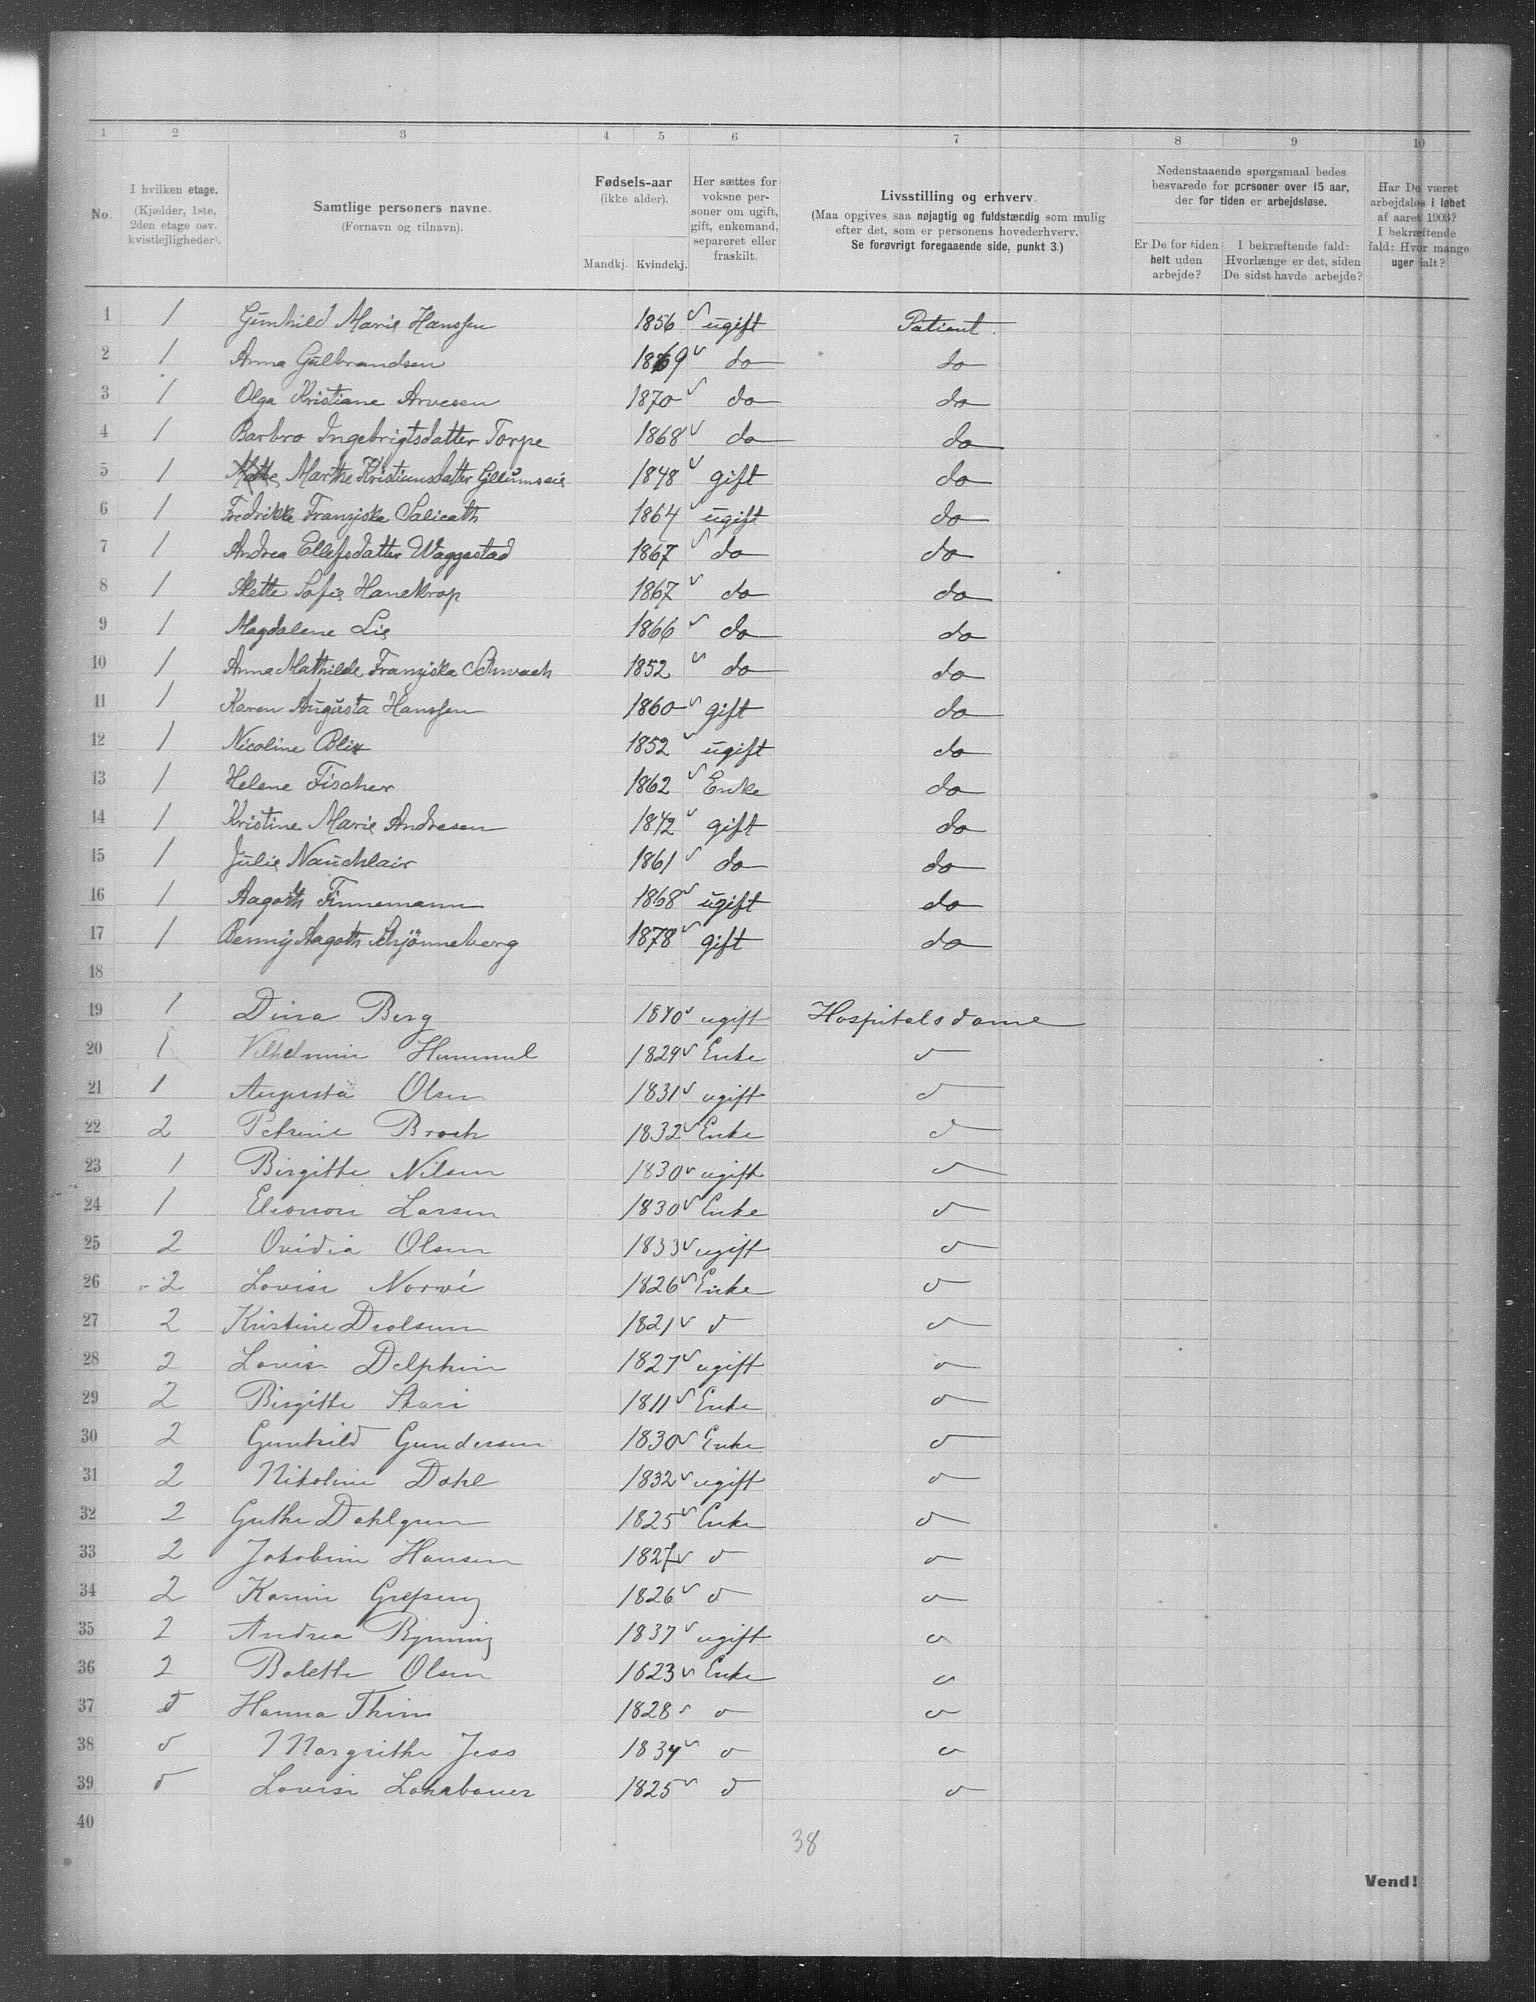 1 2 3 4 5 6 7 8 9 10
No. I hvilken etage. (Kjælder, 1ste, 2den etage osv. kvistlejligheder).
Samtlige personers navne. (Fornavn og tilnavn).
Fødsels-aar (ikke alder). Mandkj. Kvindekj.
Her sættes for voksne personer om ugift, gift, enkemand, separeret eller fraskilt.
Livsstilling og erhverv. (Maa opgives saa nøjagtig og fuldstændig som mulig efter det, som er personens hovederhverv. Se forøvrigt foregaaende side, punkt 3.)
Nedenstaaende spørgsmaal bedes besvarede for personer over 15 aar, der for tiden er arbejdsløse.
Er De for tiden helt uden arbejde?
I bekræftende fald: Hvorlænge er det, siden De sidst havde arbejde?
Har De været arbejdsløs i løbet af aaret 1903? I bekræftende fald: Hvor mange uger ialt?
1 1 Gunhild Marie Hanssen 1856 ugift Patient.
2 1 Anna Gulbrandsen 1869 do do
3 1 Olga Kristiane Arvesen 1870 do do
4 1 Barbro Ingebrigtsdatter Torpe 1868 do do
5 1 Marthe Kristiansdatter 1848 gift do
6 1 Fredrikke Franziska Salicath 1864 ugift do
7 1 Andrea Ellefsdatter Waggestad 1867 do do
8 1 Alette Sofie Hanekrop 1867 do do
9 1 Magdalene Lie 1866 do do
10 1 Anna Mathilde Franziska Schwach 1852 do do
11 1 Karen Augusta Hanssen 1860 gift do
12 1 Nicoline Blix 1852 ugift do
13 1 Helene Fischer 1862 Enke do
14 1 Kristine Marie Andresen 1842 gift do
15 1 Julie Nauchlair 1861 do do
16 1 Aagoth Finnemann 1868 ugift do
17 1 Benny Aagoth Schjønneberg 1878 gift do
18
19 1 Dina Berg 1840 ugift Hospitalsdame
20 1 Vilhelmine Hummel 1829 Enke do
21 1 Augusta Olsen 1831 ugift do
22 2 Petrine Broch 1832 Enke do
23 1 Birgitte Nilsen 1830 ugift do
24 1 Elionore Larsen 1830 Enke do
25 2 Ovidia Olsen 1833 ugift do
26 2 Lovise Norvé 1826 Enke do
27 2 Kristine Drolsum 1821 do do
28 2 Lovise Delphin 1827 ugift do
29 2 Birgitte Skari 1811 Enke do
30 2 Gunhild Gundersen 1830 Enke do
31 2 Nikoline Dahl 1832 ugift do
32 2 Dahlgren 1825 Enke do
33 2 Jakobine Hansen 1827 do do
34 2 Karine 1826 do do
35 2 Andrea Rynning 1837 ugift do
36 2 Bolette Olsen 1823 Enke do
37 do Hanna 1828 do do
38 do Margrithe Jess 1834 do do
39 do Lovise 1825 do do
40
38
Vend!